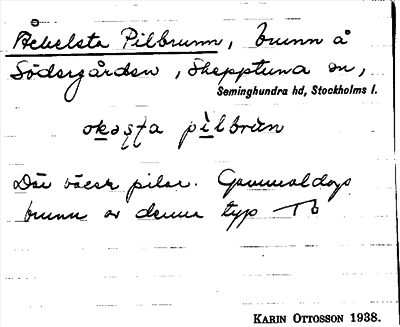 Åckelsta Pilbrunn, brunn å
Södergården, Skepptuna sn,
Seminghundra hd, Stockholms l.
pìlbrùn
Där växer pilar. Gammaldags
brunn av denna typ
KARIN OTTOSSON 1938.